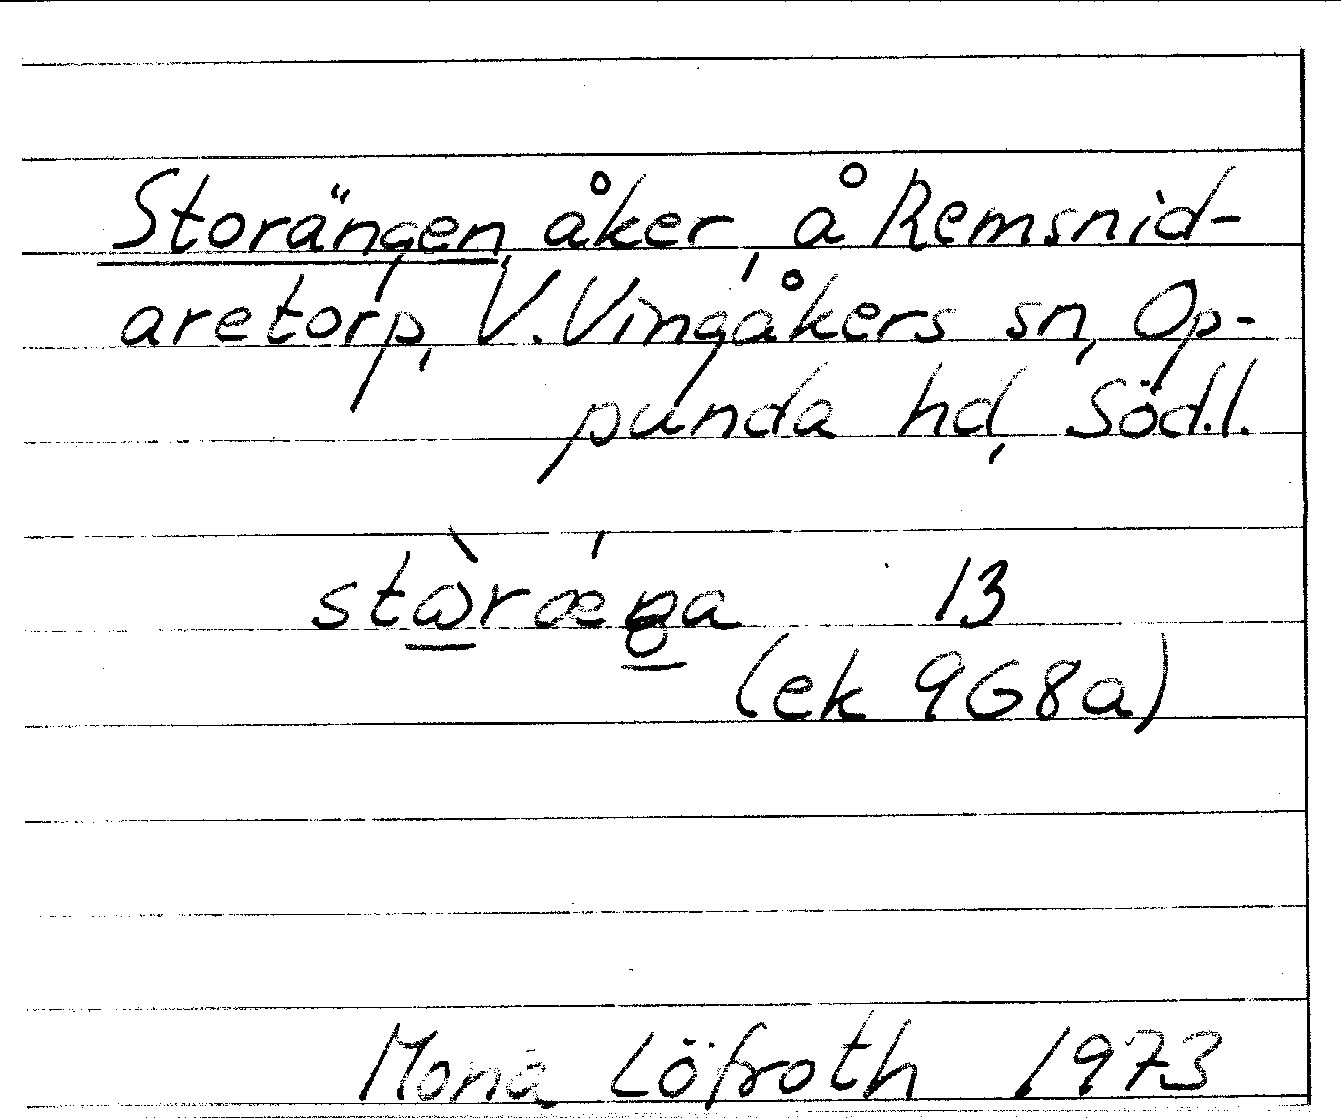 Storängen, åker, å Remsnid-
aretorp, V. Vingåkers sn, Op-
punda hd, Södl.
13
(ek 9G8a)
Mona Löfroth 1973